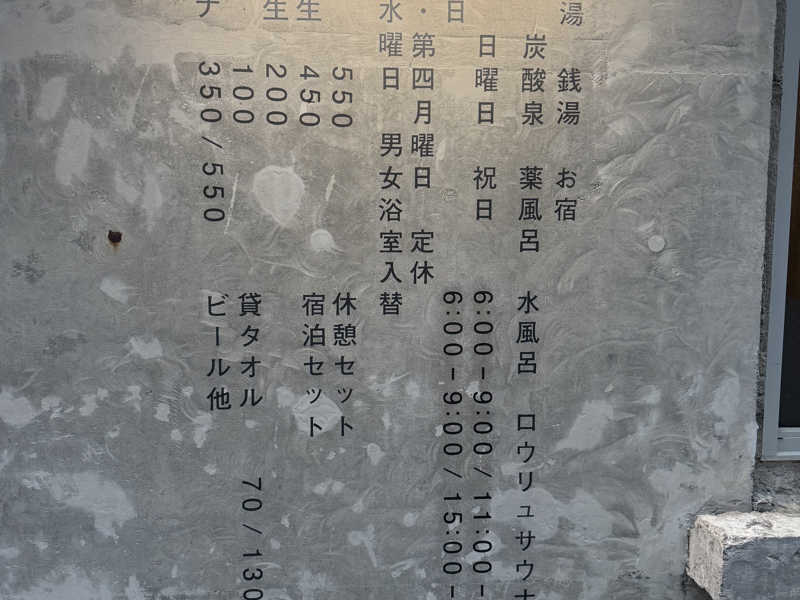 湯 銭湯 お宿
炭酸泉 薬風呂 水風呂 ロウリュサウナ
日曜日 祝日 6:00-9:00/11:00-
日 6:00-9:00/15:00-
・第四月曜日 定休
水曜日 男女浴室入替
550 休憩セット
生 450 宿泊セット
生 200
100 貸タオル 70/130
ナ 350/550 ビール他